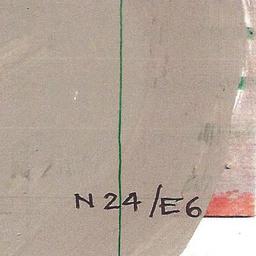 N 24/E6